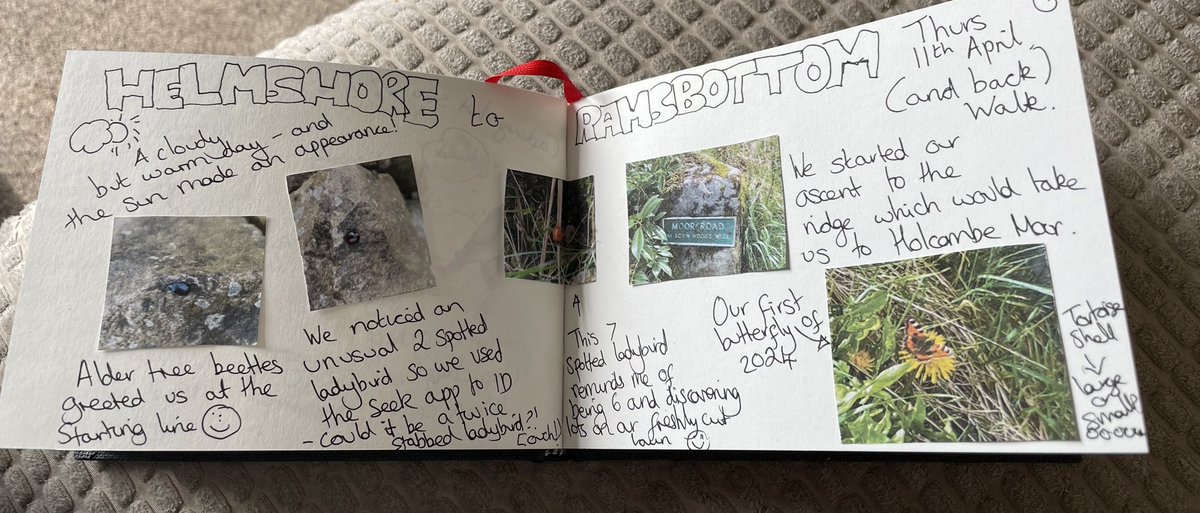 HELMSHORE to RAMSBOTTOM
Thurs
11th April
(and back)
Walk.
A cloudy
but warm day - and
the sun made an appearance!
Alder tree beetles
greeted us at the
Starting line
We noticed an
unusual 2 spotted
ladybird so we used
the Seek app to ID
- could it be a twice
stabbed ladybird?!
(ouch!)
A
This 7
Spotted ladybird
reminds me of
being 6 and discovering
lots on our freshly cut
lawn
MOOR ROAD
We started our
ascent to the
ridge which would take
us to Holcambe Moor.
Our first
butterfly of
2024
A
Tortoise
Shell
large
or
small